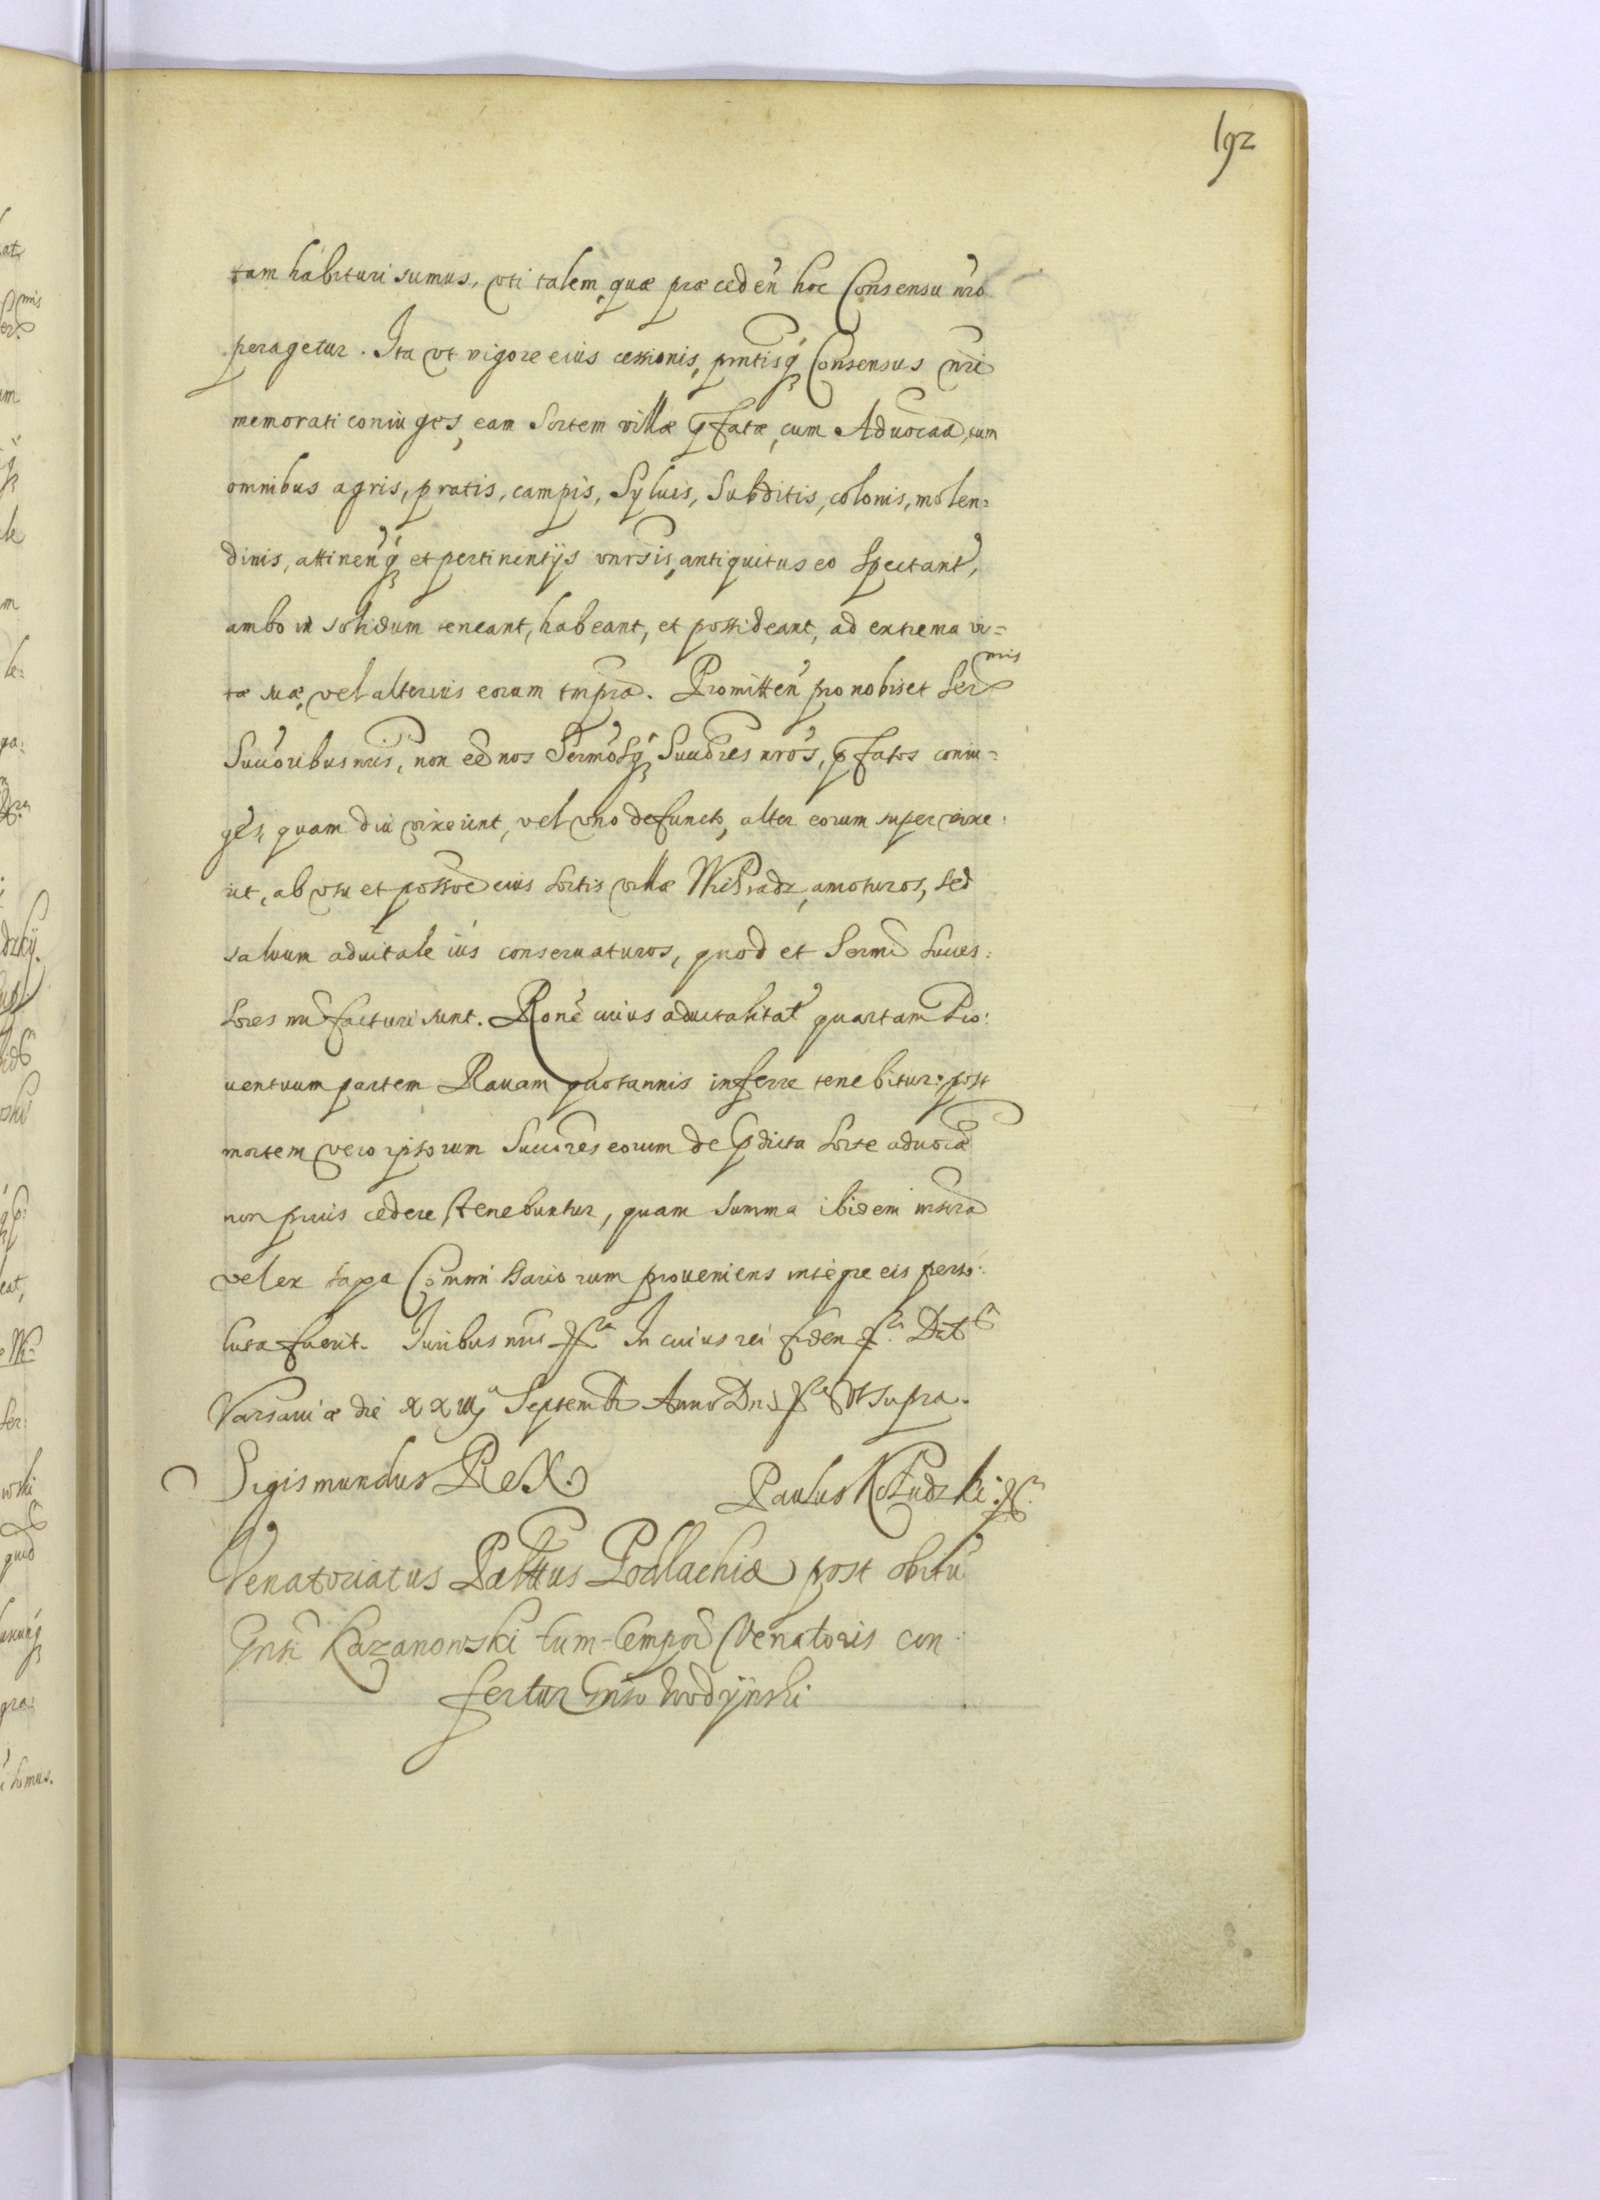 192
tam habituri sumus, uti talem, quæ præceden̄ hoc Consensu nr̄o
peragetur. Ita ut vigore eius cessionis, pn̄tisq; Consensus nr̄i
memorati coniuges, eam Sortem villæ p̄fatæ, cum Advocaā, tum
omnibus agris, pratis, campis, Sylvis, Subditis, colonis, molen=
dinis, attinen̄q; et pertinentijs vnr̄sis, antiquitus eo Spectant̄,
ambo in solidum teneant, habeant, et possideant, ad extrema vi=
tæ suæ, vel alterius eorum tmp̄ra. Promitten̄ pro nobis et Ser mis
Succ̄oribus nr̄is, non eē nos Sermōsq; Succ̄ores nr̄os, p̄fatos coniu=
ges, quam diu vixerint, vel uno defuncto, alter eorum supervixe:
rit, ab usu et poss̄oe eius sortis villæ amoturos, sed
salvum advitale ius conservaturos, quod et Sermī Succes:
sores nr̄i facturi sunt. Rōne cuius advitalitat̄ quartam Pro:
ventuum partem Ravam quotannis inferre tenebitur: post
mortem vero ipsorum Succ̄ores eorum de p̄dicta Sorte advocaā
non prius cedere tenebuntur, quam summa ibidem inscr̄a
vel ex taxa Com̄missariorum proveniens integre eis perso:
luta fuerit. Iuribus nr̄is &ca In cuius rei fidem &ca. Dat
Varsaviæ die XXiiij a Septembr̄ Anno Dn̄i &ca Vt supra.
Sigismundus ReX. Paulus &ca
Venatoriatus Palttus Podlachiæ post obitū
Gn̄si Kazanowski tum-tempor̄ Venatoris con:
fertur Gn̄so Wodijnski